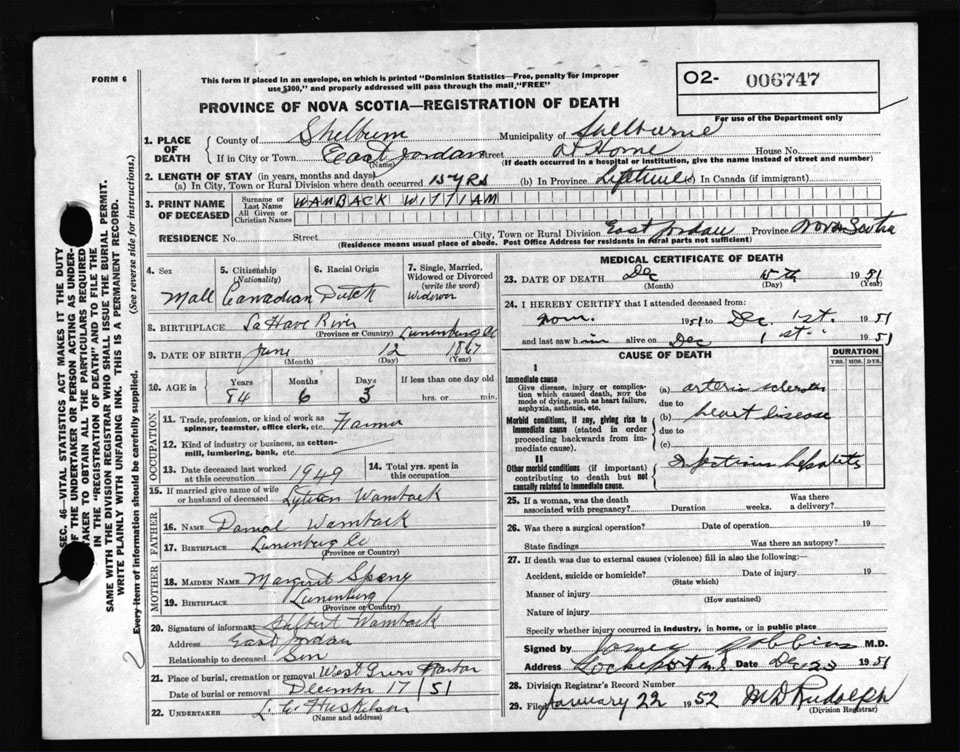 FORM 6
This form if placed in an envelope, on which is printed "Dominion Statistics—Free, penalty for improper
use $300," and properly addressed will pass through the mail, "FREE"
O2- 006747
For use of the Department only
PROVINCE OF NOVA SCOTIA—REGISTRATION OF DEATH
1. PLACE OF DEATH
County of Shelburn Municipality of Shelburne
If in City or Town East Jordan Street at Home House No.
(Name) (If death occurred in a hospital or institution, give the name instead of street and number)
2. LENGTH OF STAY (in years, months and days)
(a) In City, Town or Rural Division where death occurred 15 YRS (b) In Province Lifetime (c) In Canada (if immigrant)
3. PRINT NAME OF DECEASED
Surname or Last Name WAMBACK WITTIAM
All Given or Christian Names
RESIDENCE No. Street City, Town or Rural Division East Jordan Province Nova Scotia
(Residence means usual place of abode. Post Office Address for residents in rural parts not sufficient)
4. Sex
Mall
5. Citizenship (Nationality)
Canadian
6. Racial Origin
Dutch
7. Single, Married, Widowed or Divorced (write the word)
Widower
8. BIRTHPLACE La Have River Lunenburg Co
(Province or Country)
9. DATE OF BIRTH June 12 1867
(Month) (Day) (Year)
10. AGE in
Years Months Days If less than one day old
84 6 3 hrs. or min.
OCCUPATION
11. Trade, profession, or kind of work as Farmer
spinner, teamster, office clerk, etc.
12. Kind of industry or business, as cotten-
mill, lumbering, bank, etc.
13. Date deceased last worked at this occupation 1949
14. Total yrs. spent in this occupation
15. If married give name of wife or husband of deceased Wamback
FATHER
16. NAME Wamback
17. BIRTHPLACE Lunenburg Co
(Province or Country)
MOTHER
18. MAIDEN NAME Margaret
19. BIRTHPLACE Lunenburg
(Province or Country)
20. Signature of informant Wamback
Address East Jordan
Relationship to deceased Son
21. Place of burial, cremation or removal West Green Harbor
Date of burial or removal December 17/51
22. UNDERTAKER L. C. Huskilson
(Name and address)
MEDICAL CERTIFICATE OF DEATH
23. DATE OF DEATH Dec 15th 1951
(Month) (Day) (Year)
24. I HEREBY CERTIFY that I attended deceased from:
1951 to Dec. 1st. 1951
and last saw him alive on Dec 1st. 1951
CAUSE OF DEATH
DURATION
YRS. MOS. DYS.
I
Immediate cause
Give disease, injury or complica-
tion which caused death, not the
mode of dying, such as heart failure,
asphyxia, asthenia, etc.
(a) arterio sclerotic
due to
Morbid conditions, if any, giving rise to
immediate cause (stated in order
proceeding backwards from im-
mediate cause).
(b) heart disease
due to
(c)
II
Other morbid conditions (if important)
contributing to death but not
causally related to immediate cause.
Infectious hepatitis
25. If a woman, was the death
associated with pregnancy? Duration weeks. Was there a delivery?
26. Was there a surgical operation? Date of operation 19
State findings Was there an autopsy?
27. If death was due to external causes (violence) fill in also the following:—
Accident, suicide or homicide? Date of injury 19
(State which)
Manner of injury
(How sustained)
Nature of injury
Specify whether injury occurred in industry, in home, or in public place
Signed by Robbins M.D.
Address Lockeport N.S. Date Dec 23 1951
28. Division Registrar's Record Number
29. Filed January 22 1952 M D Rudolph
(Division Registrar)
SEC. 46—VITAL STATISTICS ACT MAKES IT THE DUTY
OF THE UNDERTAKER OR PERSON ACTING AS UNDER-
TAKER TO OBTAIN ALL THE PARTICULARS REQUIRED
IN THE "REGISTRATION OF DEATH" AND TO FILE THE
SAME WITH THE DIVISION REGISTRAR WHO SHALL ISSUE THE BURIAL PERMIT.
WRITE PLAINLY WITH UNFADING INK. THIS IS A PERMANENT RECORD.
Every item of information should be carefully supplied. (See reverse side for instructions.)